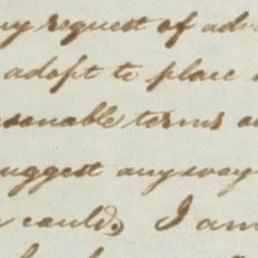 my request of adv
adopt to place
sonable terms a
uggest anyway
could, I am